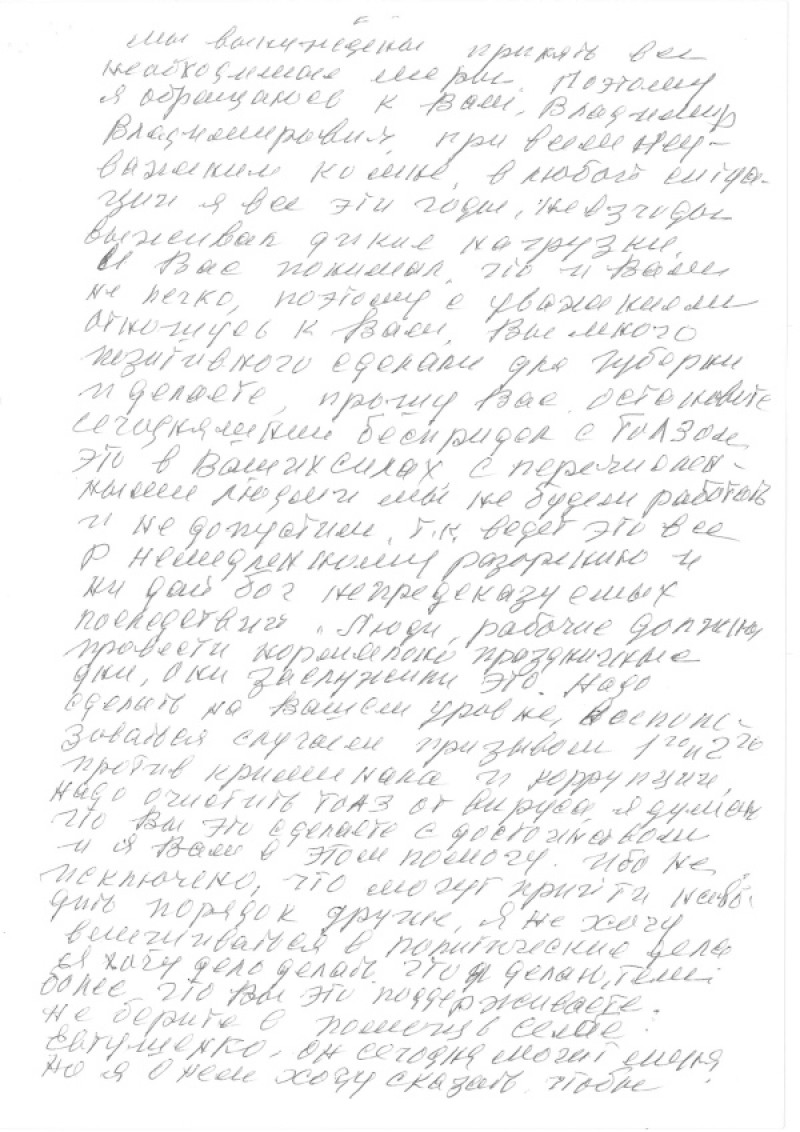 мы вынуждены принять все
необходимые меры. Поэтому
я обращаюсь к Вам, Владимир
Владимирович, при всем неу-
важении ко мне, в любой ситуа-
ции я все эти годы, невзгоды
выживал дикие нагрузки,
и Вас понимал, что и Вам
не легко, поэтому с уважением
отношусь к Вам, Вы много
позитивного сделали для губернии
и делаете, прошу Вас остановите
сегодняшний беспридел с ТоАЗом,
это в Ваших силах, с перечислен-
ными людьми мы не будем работать
и не допустим, т.к. ведет это все
к немедленному разорению и
ни дай бог непредсказуемых
последствий. Люди, рабочие должны
провести нормально праздничные
дни, они заслужили это. Надо
сделать на Вашем уровне, воспользо-
зоваться случаем призывом 1го и 2го
против криминала и коррупции,
надо очистить ТоАЗ от вируса, я думаю
что Вы это сделаете с достоинством
и я Вам в этом помогу. Ибо не
исключено, что могут прийти наво-
дить порядок другие, я не хочу
вмешиваться в политические дела
я хочу дело делать, что и делаю, тем
более что Вы это поддерживаете.
Не берите в помощь
Евтушенко, он сегодня может
но я о нем хочу сказать, чтобы